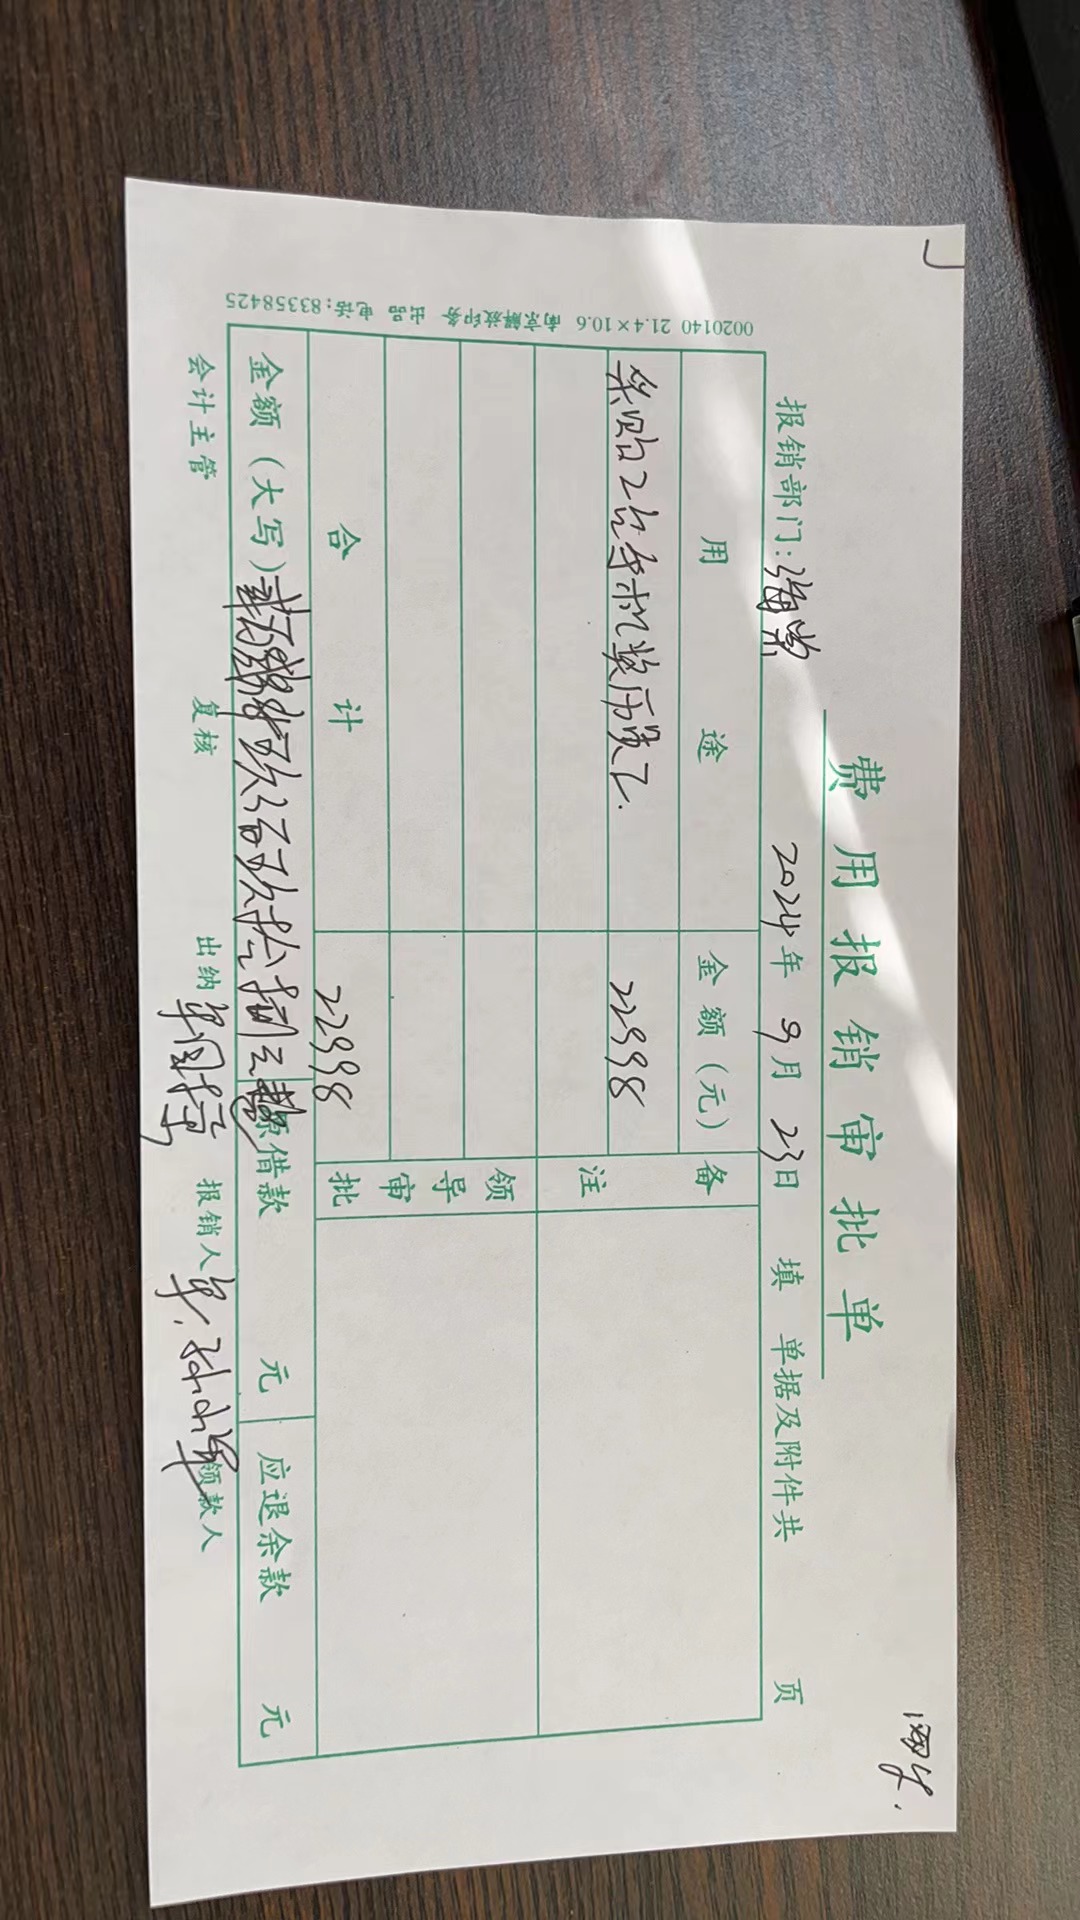 费用报销审批单
报销部门: 海棠 2024年 9月 23日 填 单据及附件共 页
用途 金额(元) 备注
2台手机奖历员工. 22998
领导审批
合计 22998
金额(大写) 玖佰玖拾捌元整 原借款 元 应退余款 元
会计主管 复核 出纳 报销人 领款人
0020140 21.4×10.6 南京解放印务 出品 电话:83358425